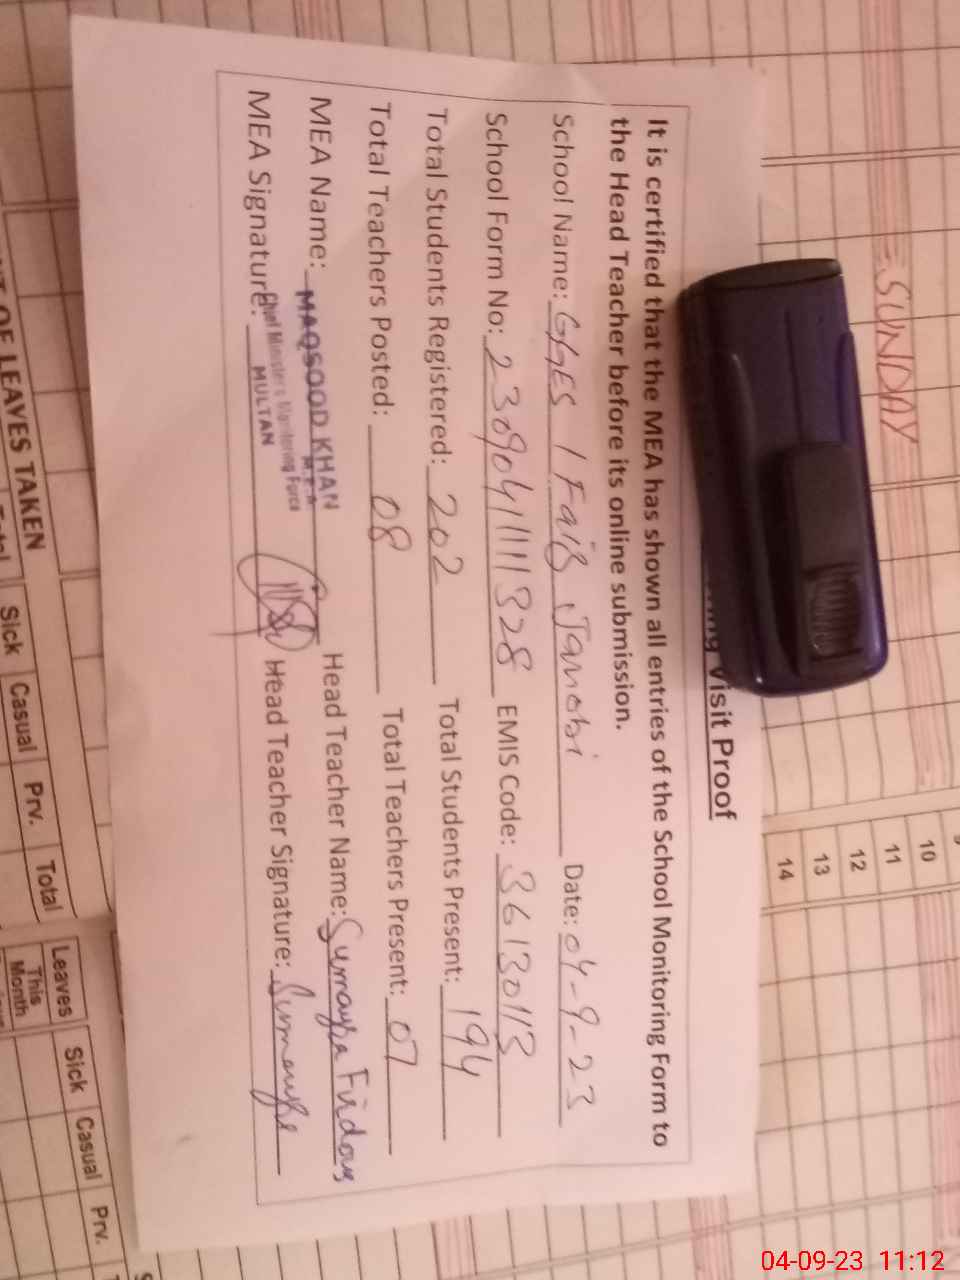 Visit Proof
It is certified that the MEA has shown all entries of the School Monitoring Form to
the Head Teacher before its online submission.
School Name: GGES 1 Faiz Date: 04-9-23
School Form No: 2309041111328 EMIS Code: 36130113
Total Students Registered: 202 Total Students Present: 194
Total Teachers Posted: 08 Total Teachers Present: 07
MEA Name: MAQSOOD KHAN Head Teacher Name: Sumayya Firdous
MEA Signature: Head Teacher Signature: Sumayya
Chief Minister's Monitoring Force
MULTAN
SUNDAY
10
11
12
13
14
OF LEAVES TAKEN
Sick Casual Prv. Total
Leaves
This
Month
Sick Casual Prv.
04-09-23 11:12